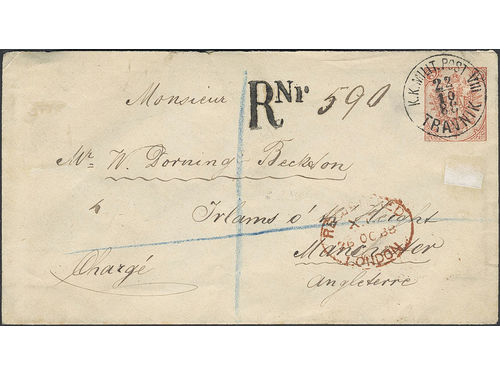 K.K. MILIT. POST VIII
22
10
TRAVNIK
Monsieur RNr 590
Mr W. Dorning Beckton
Irlams o' th Height
Manchester
Angleterre
Chargé
REGISTERED
X
26 OC 88
LONDON